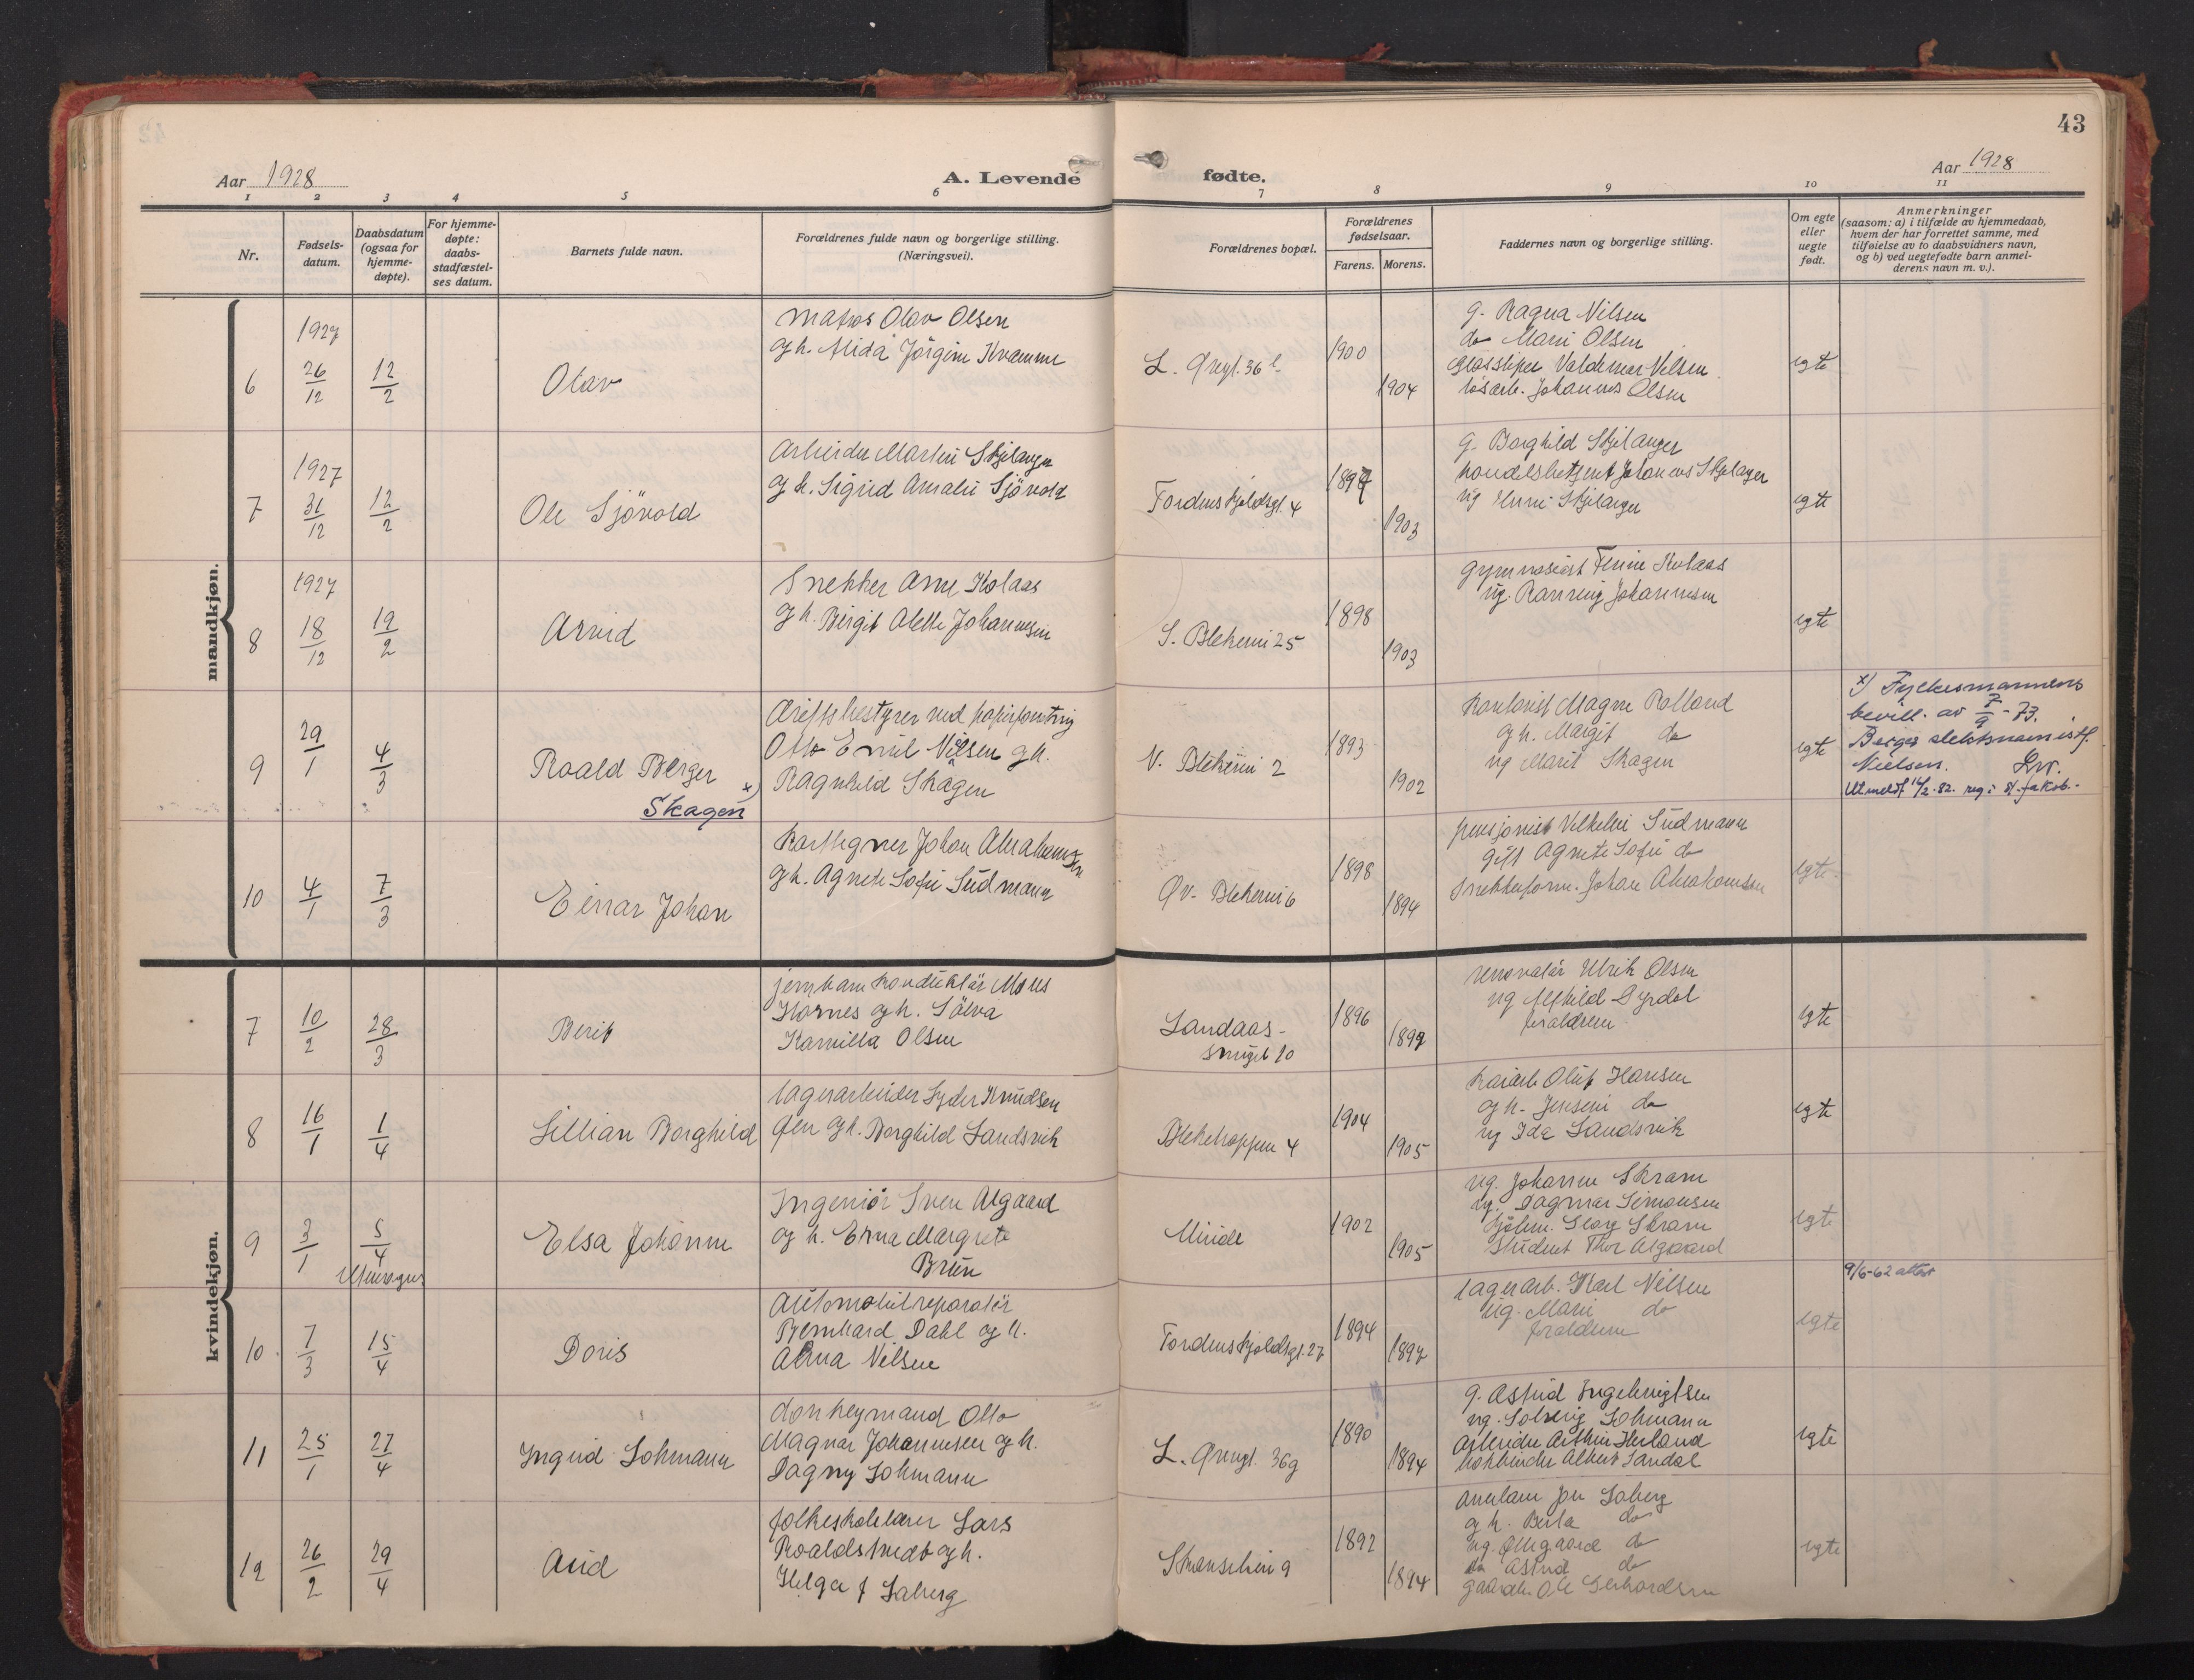 43
Aar 1928
A. Levende
fødte.
Aar 1928
1 2 3 4 5 6 7 8 9 10 11
Nr.
Fødsels-
datum.
Daabsdatum
(ogsaa for
hjemme-
døpte).
For hjemme-
døpte:
daabs-
stadfæstel-
ses datum.
Barnets fulde navn.
Forældrenes fulde navn og borgerlige stilling.
(Næringsvei).
Forældrenes bopæl.
Forældrenes
fødselsaar.
Farens. Morens.
Faddernes navn og borgerlige stilling.
Om egte
eller
uegte
født.
Anmerkninger
(saasom: a) i tilfælde av hjemmedaab,
hvem der har forrettet samme, med
tilføielse av to daabsvidners navn,
og b) ved uegtefødte barn anmel-
derens navn m. v.).
mandkjøn.
6
1927
26/12
12/2
Olav
Matros Olav Olsen
og h. Alida Jörgine Kvamme
L. Øregt. 36
1900
1904
g. Ragna Nilsen
do Marie Olsen
Glassliper Valdemar Nilsen
løsarb. Johannes Olsen
egte
7
1927
31/12
12/2
Ole Sjövold
Arbeider Martin Skjelanger
og h. Sigrid Amalie Sjövold
Tordenskjoldsgt. 4
1897
1903
g. Borghild Skjelanger
handelsbetjent Johannes Skjelanger
ug Skjelanger
egte
8
1927
18/12
19/2
Arvid
Snekker Arne Kolaas
og h. Birgit Alette Johannesen
S. Blekevei 25
1898
1903
gymnasiast Kolaas
ug. Johannesen
egte
9
29/1
4/3
Roald Berger x)
Skagen
Driftsbestyrer ved
Otto Emil Nilsen og h.
Ragnhild Skagen
N. Blekevei 2
1893
1902
Kontorist Magne Rolland
og h. Margit do
ug Marit Skagen
egte
x) Fylkesmannens
bevill. av 7/9-73.
Berger slektsnavn istf.
Nielsen.
Utmeldt 16/2-82. reg i St. Jakob.
10
4/1
7/3
Einar Johan
Karttegner Johan Abrahamsen
og h. Agnete Sofie Südmann
Øv. Blekevei 6
1898
1894
pensjonist Vilhelm Südmann
gift Agnete Sofie do
Snekkerform. Johan Abrahamsen
egte
kvindekjøn.
7
10/2
28/3
Berit
jernbanekonduktør Mons
Hornes og h. Sölva
Kamilla Olsen
Landaas-
smuget 10
1896
1899
renovatør Ulrik Olsen
ug Alfhild Dyrdal
foraldrene
egte
8
16/1
1/4
Lillian Borghild
lagerarbeider Lyder Knudsen
Øen og h. Borghild Landsvik
Blekehoppen 4
1904
1905
kaiarb Oluf Hansen
og h. Jensine do
ug Ida Landsvik
egte
9
3/1
5/4
Elsa Johanne
Ingeniør Sven Algaard
og h. Erna Margrete
Brun
Minde
1902
1905
ug. Johanne Skram
ug. Dagmar Simonsen
Georg Skram
Student Thor Algaard
egte
10
7/3
15/4
Doris
Automobilreparatør
Bernhard Dahl og h.
Alma Nilsen
Tordenskjoldsgt. 27
1894
1897
lagerarb. Karl Nilsen
ug. Marie do
foraldrene
egte
9/6-62 attest
11
25/1
27/4
Ingrid Lohmann
donkeymand Otto
Magnar Johannesen og h.
Dagny Lohmann
L. Øregt. 36g
1890
1894
g. Astrid Ingebrigtsen
ug. Solveig Lohmann
Arbeider Arthur Herland
bokbinder Albert Sandal
egte
12
26/2
29/4
Aud
folkeskolelærer Lars
Roaldstvedt og h.
Helga J Laberg
Skanselien 9
1892
1894
Jon Laberg
og h. Berta do
ug. do
do Astrid do
Ole Gerhardsen
egte